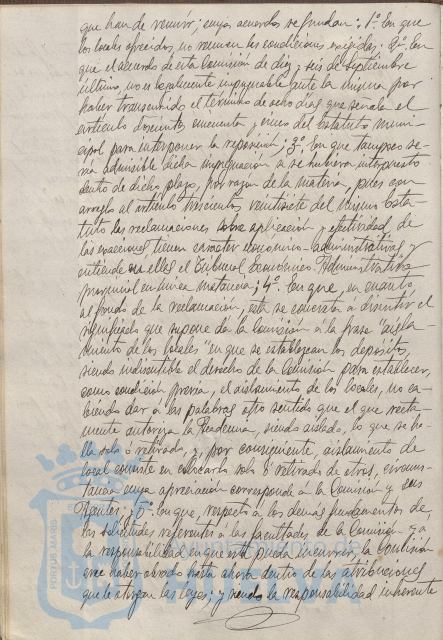 que han de reunir; cuyos acuerdos se fundan: 1º. En que
los locales ofrecidos, no reunen las condiciones exigidas; 2º. En
que el acuerdo de esta Comisión de diez y seis de Septiembre
último, no es legalmente impugnable ante la misma por
haber transcurrido el término de ocho días que señala el
artículo doscientos cincuenta y cinco del Estatuto muni-
cipal para interponer la reposición; 3º. En que tampoco se-
ría admisible dicha impugnación si se hubiera interpuesto
dentro de dicho plazo, por razón de la materia, pues con
arreglo al artículo trescientos veintisiete del mismo Esta-
tuto las reclamaciones sobre aplicación y efectividad de
las exacciones, tienen carácter económico-administrativas y
entiende en ellas el Tribunal Económico Administrativo
provincial en única instancia; 4º. En que, en cuanto
al fondo de la reclamación, esta se concreta á discutir el
significado que supone de la Comisión á la frase "aisla-
miento de los locales" en que se establezcan los depósitos,
siendo indiscutible el derecho de la Comisión para establecer,
como condición previa, el aislamiento de los locales, no ca-
biendo dar á las palabras otro sentido que el que recta-
mente autoriza la Academia, siendo aislado, lo que se ha-
lla solo o retirado, y, por consiguiente, aislamiento de
local consiste en colocarlo solo ó retirado de otros, circuns-
tancia cuya apreciación corresponde á la Comisión y sus
Agentes; 5º. En que, respecto á los demás fundamentos de
las solicitudes referentes á las facultades de la Comisión y a
la responsabilidad en que esta pueda incurrir, la Comisión
cree haber obrado hasta ahora dentro de las atribuciones
que le otorgan las leyes; y siendo la responsabilidad inherente
PORTUS MARIS